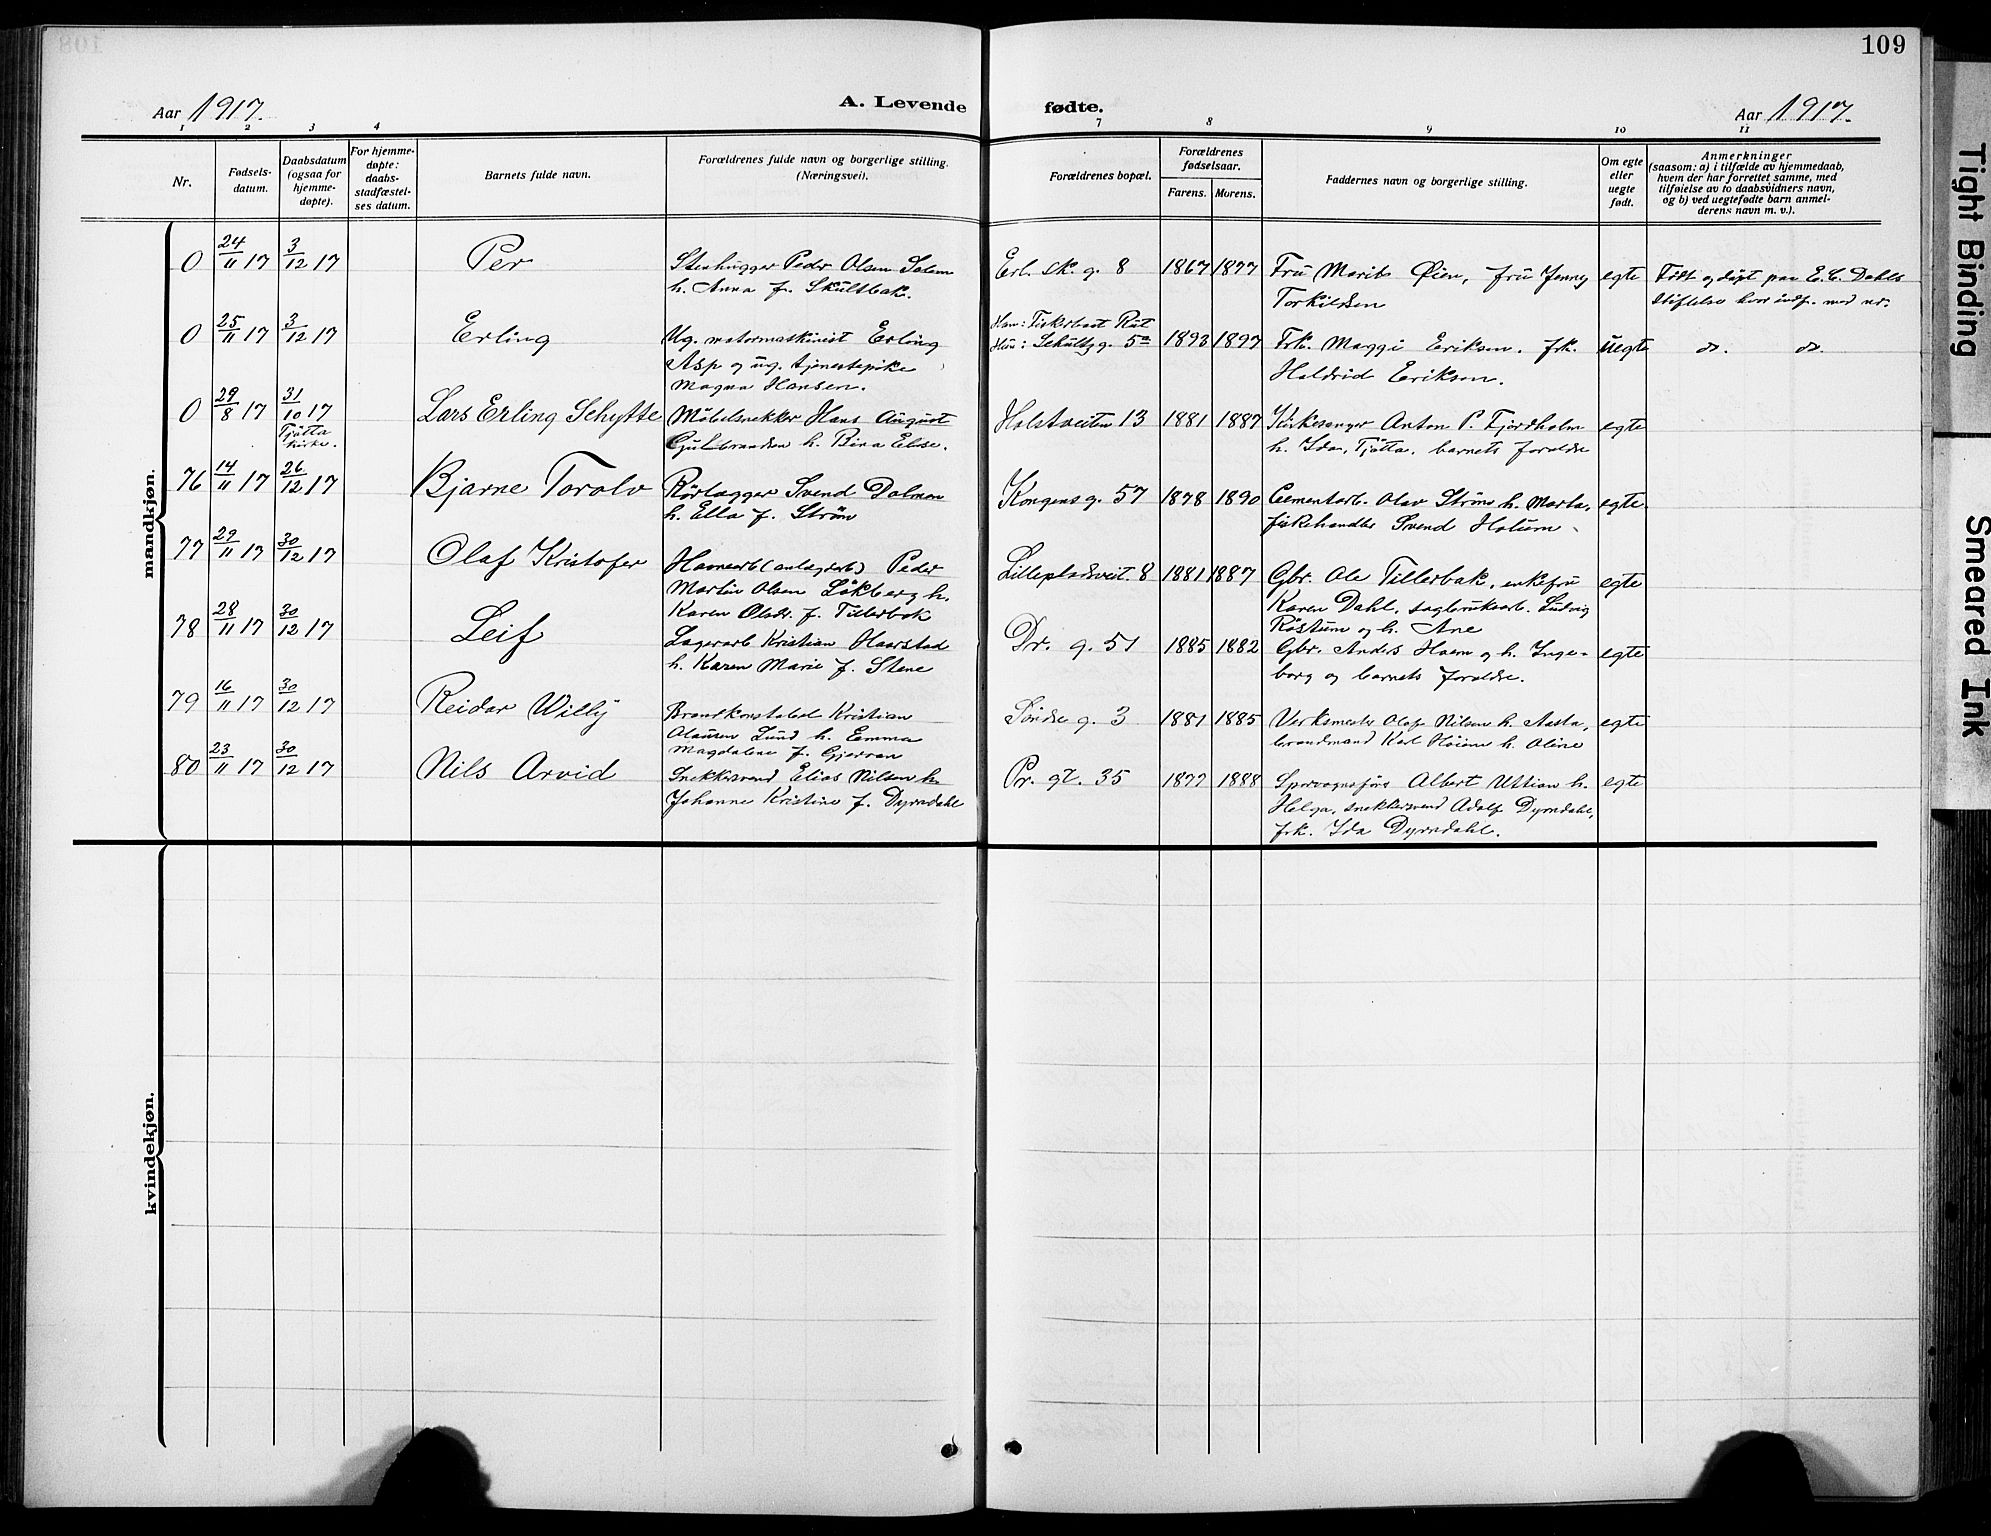 109
Aar 1917.
A. Levende
fødte.
Aar 1917.
1 2 3 4 7 8 9 10 11
Nr.
Fødsels-
datum.
Daabsdatum
(ogsaa for
hjemme-
døpte).
For hjemme-
døpte:
daabs-
stadfæstel-
ses datum.
Barnets fulde navn.
Forældrenes fulde navn og borgerlige stilling.
(Næringsvei).
Forældrenes bopæl.
Forældrenes
fødselsaar.
Farens. Morens.
Faddernes navn og borgerlige stilling.
Om egte
eller
uegte
født.
Anmerkninger
(saasom: a) i tilfælde av hjemmedaab,
hvem der har forrettet samme, med
tilføielse av to daabsvidners navn,
og b) ved uegtefødte barn anmel-
derens navn m. v.).
mandkjøn.
0 24/11 17 3/12 17 Per
Stenhugger Peder Olsen Solem
h. Anna f. Skultbak.
Erl. sk. g. 8 1867 1877
Fru Marit Øien, fru Jenny
Torkildsen
egte
Født og døpt paa E. C. Dahls
stiftelse hvor indf. med nr.
0 25/11 17 3/12 17 Erling
Ug. motormaskinist Erling
Asp og ug. tjenestepike
Magna Hansen.
Han: Fiskerbaat Rut
Hun: Schultz g. 5a 1893 1897
Frk. Maggi Eriksen. frk.
Haldrid Eriksen.
uegte
do. do.
0 29/8 17 31/10 17 Lars Erling Schytte
Tjøtta
kirke.
Møbelsnekker Hans August
Gulbrandsen h. Bina Elise.
Holstveiten 13 1881 1887
Kirkesanger Anton P. Fjordholm
h. Ida, Tjøtta, barnets foreldre
egte
76 14/11 17 26/12 17 Bjarne Torolv
Rørlægger Svend Dolmen
h. Ella f. Strøm
Kongens g. 57 1878 1890
Cementarb. Olav Strøm h. Marta,
fiskehandler Svend Holum
egte
77 29/11 17 30/12 17 Olaf Kristofer
Havnearb (anlægarb) Peder
Martin Olsen Løkberg h.
Karen Olsdr. f. Tillerbak
Lillepladsveit. 8 1881 1887
Gbr. Ole Tillerbak, enkefru
Karen Dahl, sagbruksarb. Ludvig
Røstum og h. Ane
egte
78 28/11 17 30/12 17 Leif
Lagerarb Kristian Haarstad
h. Karen Marie f. Stene
Dr. g. 51 1885 1882
Gbr. Anders Hoem og h. Inge-
borg og barnets foreldre.
egte
79 16/11 17 30/12 17 Reidar Willy
Brandkonstabel Kristian
Olausen Lund h. Emma
Magdalene f. Gjervan
Søndre g. 3 1881 1885
Verksmester Olaf Nilsen h. Aasta,
brandmand Karl Høiem h. Oline
egte
80 23/11 17 30/12 17 Nils Arvid
Snekkersvend Elias Nilsen h.
Johanne Kristine f. Dyrndahl
Pr. gt. 35 1877 1888
Sporvognsfører Albert Uttian h.
Helga, snekkersvend Adolf Dyrndahl,
frk. Ida Dyrndahl.
egte
kvindekjøn.
Tight Binding
Smeared Ink